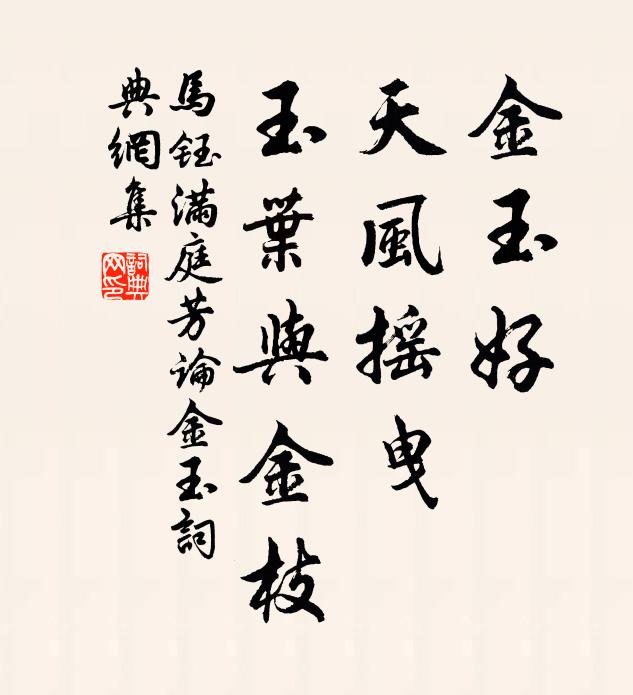 金玉好
天風搖曳
玉葉與金枝
馬鈺滿庭芳論金玉詞
典網集
詞典
网印